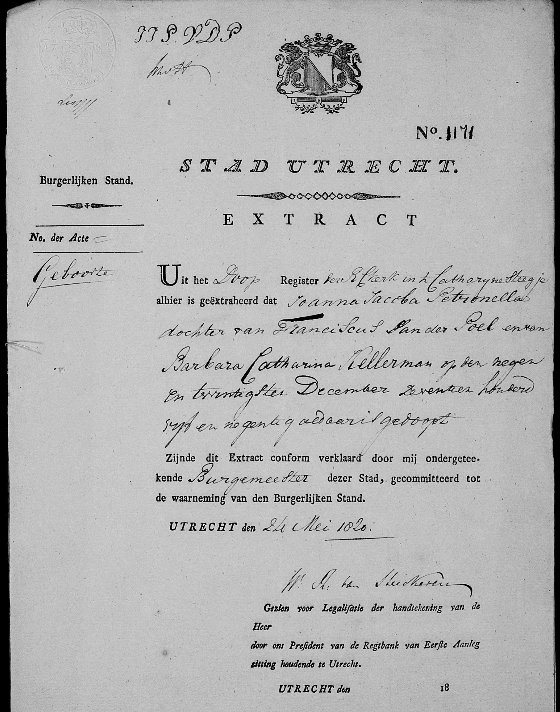 JJP. VDP
No. 1171
STAD UTRECHT.
Burgerlijken Stand.
EXTRACT
No. der Acte
Geboorte
Uit het Doop Register der R. Kerk in 't Catharynesteegje
alhier is geëxtraheerd dat Joanna Jacoba Petronella
dochter van Franciscus Van der Poel en van
Barbara Catharina Kellerman op den negen
en twintigsten December zeventien honderd
vyf en negentig aldaar is gedoopt
Zijnde dit Extract conform verklaard door mij ondergetee-
kende Burgemeester dezer Stad, gecommitteerd tot
de waarneming van den Burgerlijken Stand.
UTRECHT den 24 Mei 1820.
Gezien voor Legalisatie der handtekening van de
Heer
door ons President van de Regtbank van Eerste Aanleg
zitting houdende te Utrecht.
UTRECHT den 18